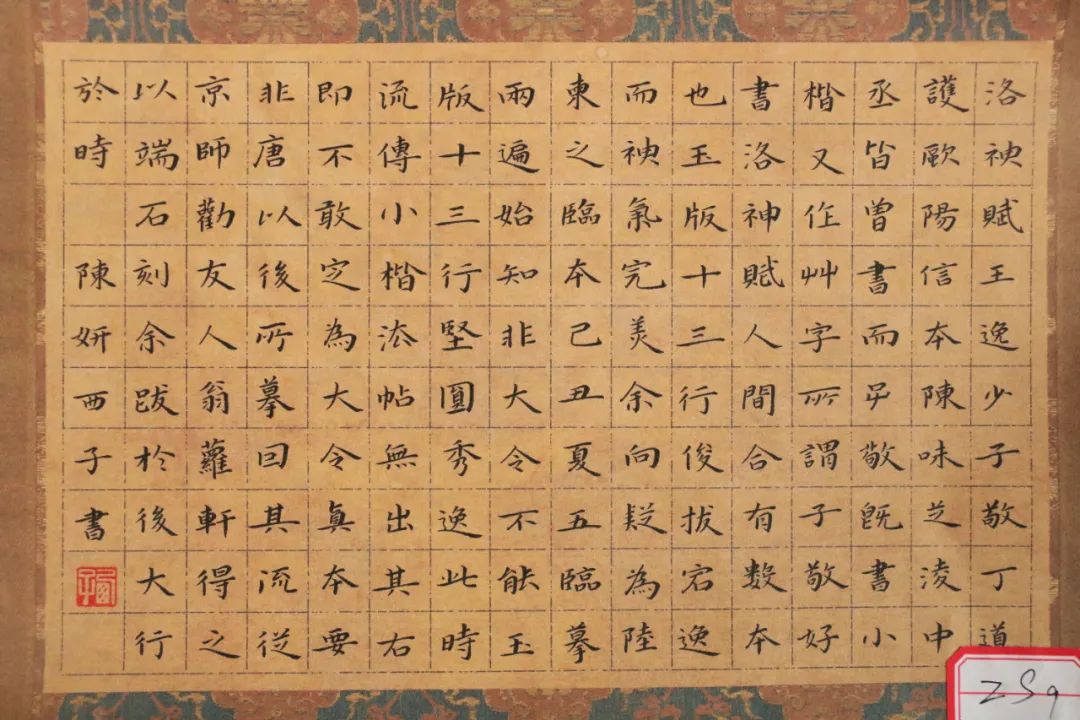 洛神賦王逸少子敬丁道
護歐陽信本陳味芝淩中
丞皆曾書而子敬旣書小
楷又作艸字所謂子敬好
書洛神賦人間合有数本
也玉版十三行俊拔宕逸
而神氣完美余向疑為陸
東之臨本己丑夏五臨摹
兩遍始知非大令不能玉
版十三行堅圓秀逸此時
流傳小楷法帖無出其右
即不敢定為大令真本要
非唐以後所摹回其流從
京師勸友人翁蘿軒得之
以端石刻余跋於後大行
於時 陳妍西子書
ZS9